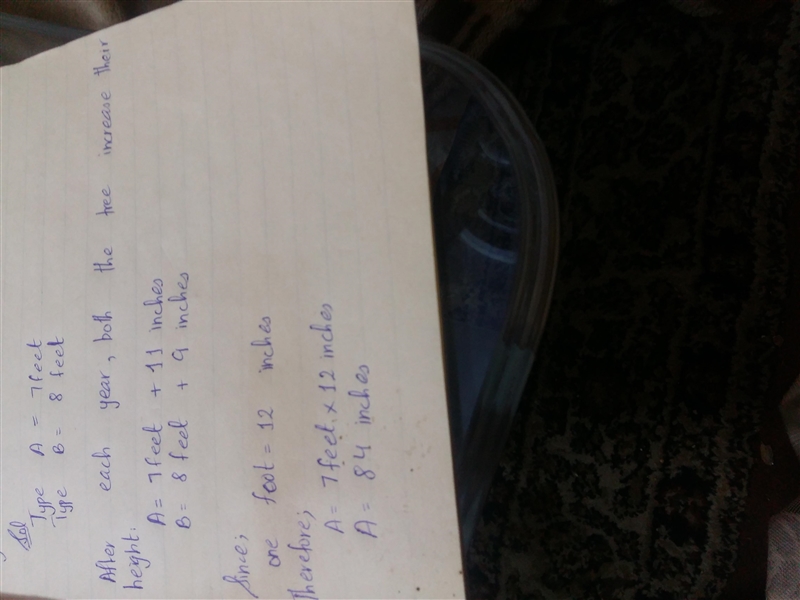 Sol
Type A = 7 feet
Type B = 8 feet
After each year, both the tree increase their
height:
A = 7 feet + 11 inches
B = 8 feet + 9 inches
Since;
one foot = 12 inches
Therefore;
A = 7 feet x 12 inches
A = 84 inches